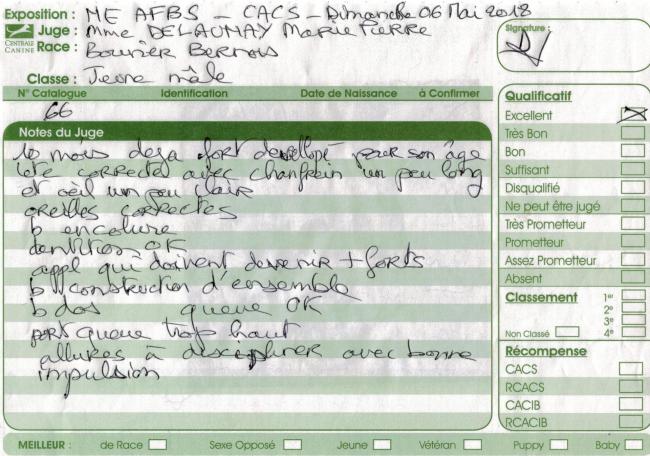 Exposition : ME AFBS - CACS - Dimanche 06 Mai 2018
Signature :
Juge : Mme DELAUNAY Marie Pierre
CENTRALE CANINE
Race : Bouvier Bernois
Classe : Jeune mâle
N° Catalogue Identification Date de Naissance à Confirmer
66
Notes du Juge
10 mois deja fort developpé pour son âge
tete correcte avec chanfrein un peu long
et oeil un peu clair
oreilles correctes
b encolure
dentition OK
appl qui doivent devenir + forts
b construction d'ensemble
b dos queue OK
port queue trop haut
allures à discipliner avec bonne
impulsion
Qualificatif
Excellent
Très Bon
Bon
Suffisant
Disqualifié
Ne peut être jugé
Très Prometteur
Prometteur
Assez Prometteur
Absent
Classement 1er
2e
3e
Non Classé 4e
Récompense
CACS
RCACS
CACIB
RCACIB
MEILLEUR : de Race Sexe Opposé Jeune Vétéran Puppy Baby